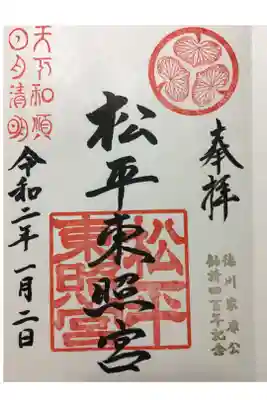 奉拝
徳川家康公
四百年記念
松平東照宮
松平
東照宮
天下和順
日月清明
令和二年一月二日